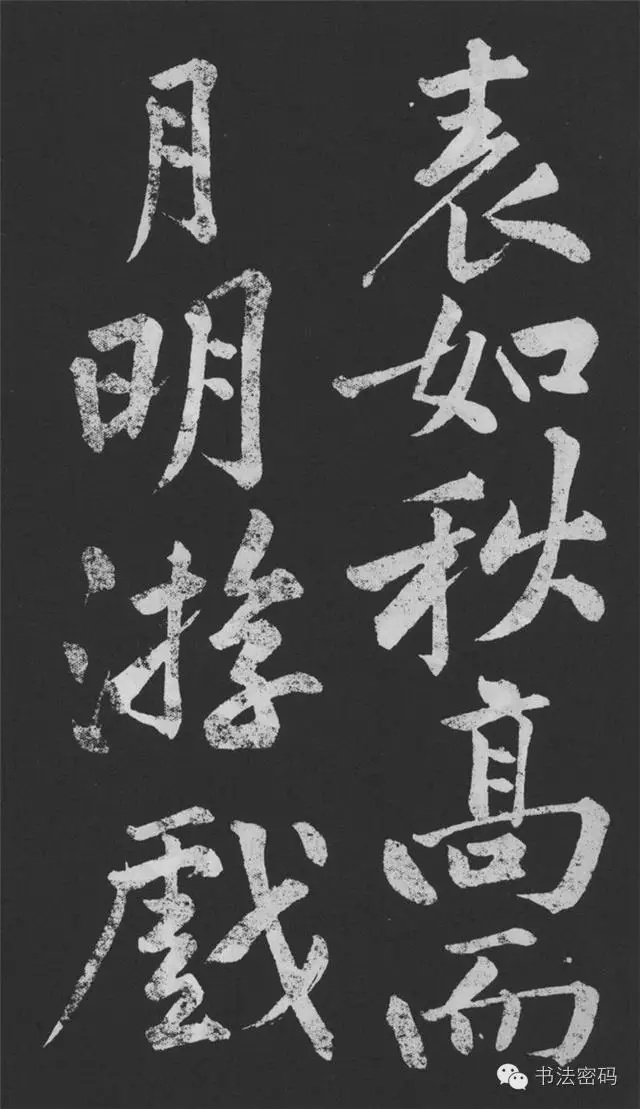 表如秋高而
月明游戲
书法密码